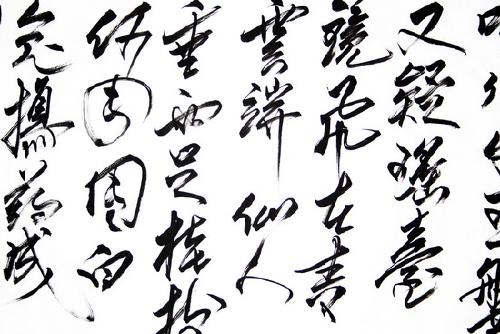 又疑瑤臺
鏡飛在青
雲端仙人
垂兩足桂樹
何團團白
兔搗藥成